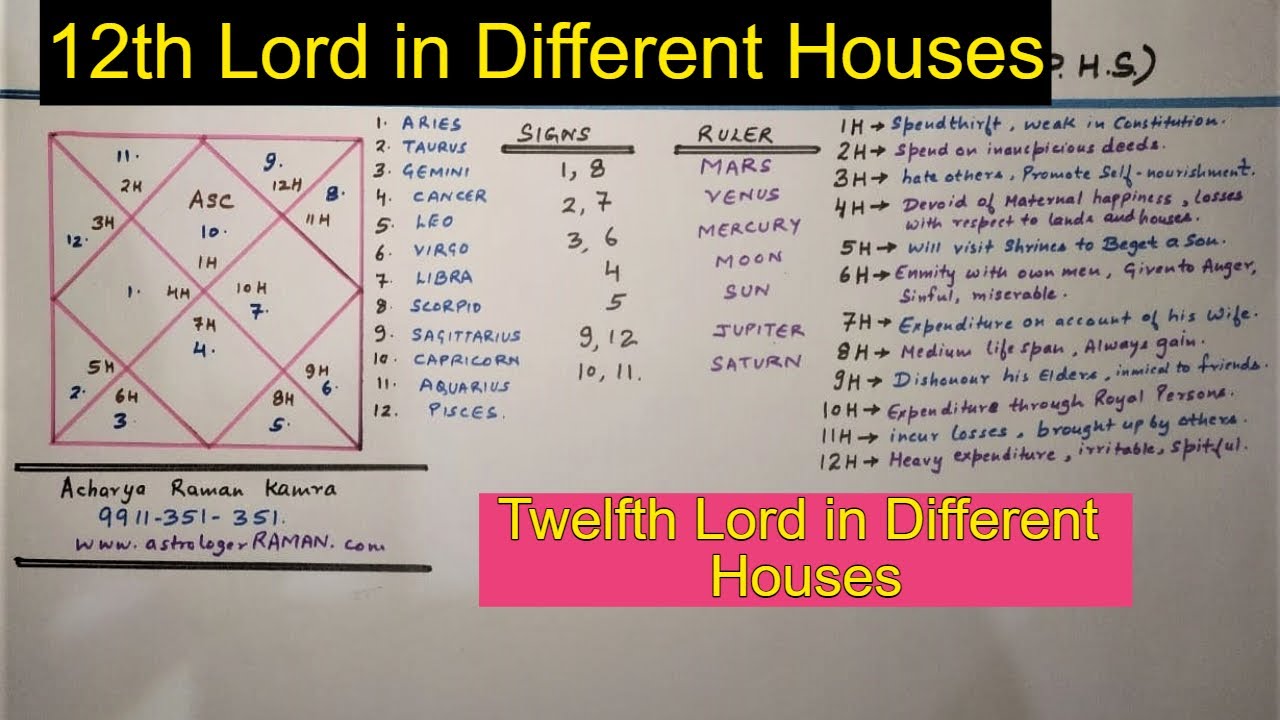 12th Lord in Different Houses
P. H.S.)
11.
2H
9.
12H
8.
11H
ASC
10.
1H
3H
12.
1.
4H
10H
7.
7H
4.
5H
2.
6H
3.
9H
6.
8H
5.
1. ARIES
2. TAURUS
3. GEMINI
4. CANCER
5. LEO
6. VIRGO
7. LIBRA
8. SCORPIO
9. SAGITTARIUS
10. CAPRICORN
11. AQUARIUS
12. PISCES.
SIGNS RULER
1, 8 MARS
2, 7 VENUS
3, 6 MERCURY
4 MOON
5 SUN
9, 12 JUPITER
10, 11. SATURN
1H → Spendthirft, weak in Constitution.
2H → Spend on inauspicious deeds.
3H → hate others, Promote Self-nourishment.
4H → Devoid of Maternal happiness, losses
with respect to lands and houses.
5H → will visit Shrines to Beget a Son.
6H → Enmity with own men, Given to Anger,
Sinful, miserable.
7H → Expenditure on account of his Wife.
8H → Medium life span, Always gain.
9H → Dishonour his Elders, inmical to friends.
10H → Expenditure through Royal Persons.
11H → incur losses, brought up by others.
12H → Heavy expenditure, irritable, Spitful.
Acharya Raman Kamra
9911-351-351.
www.astrologerRAMAN.com
Twelfth Lord in Different
Houses